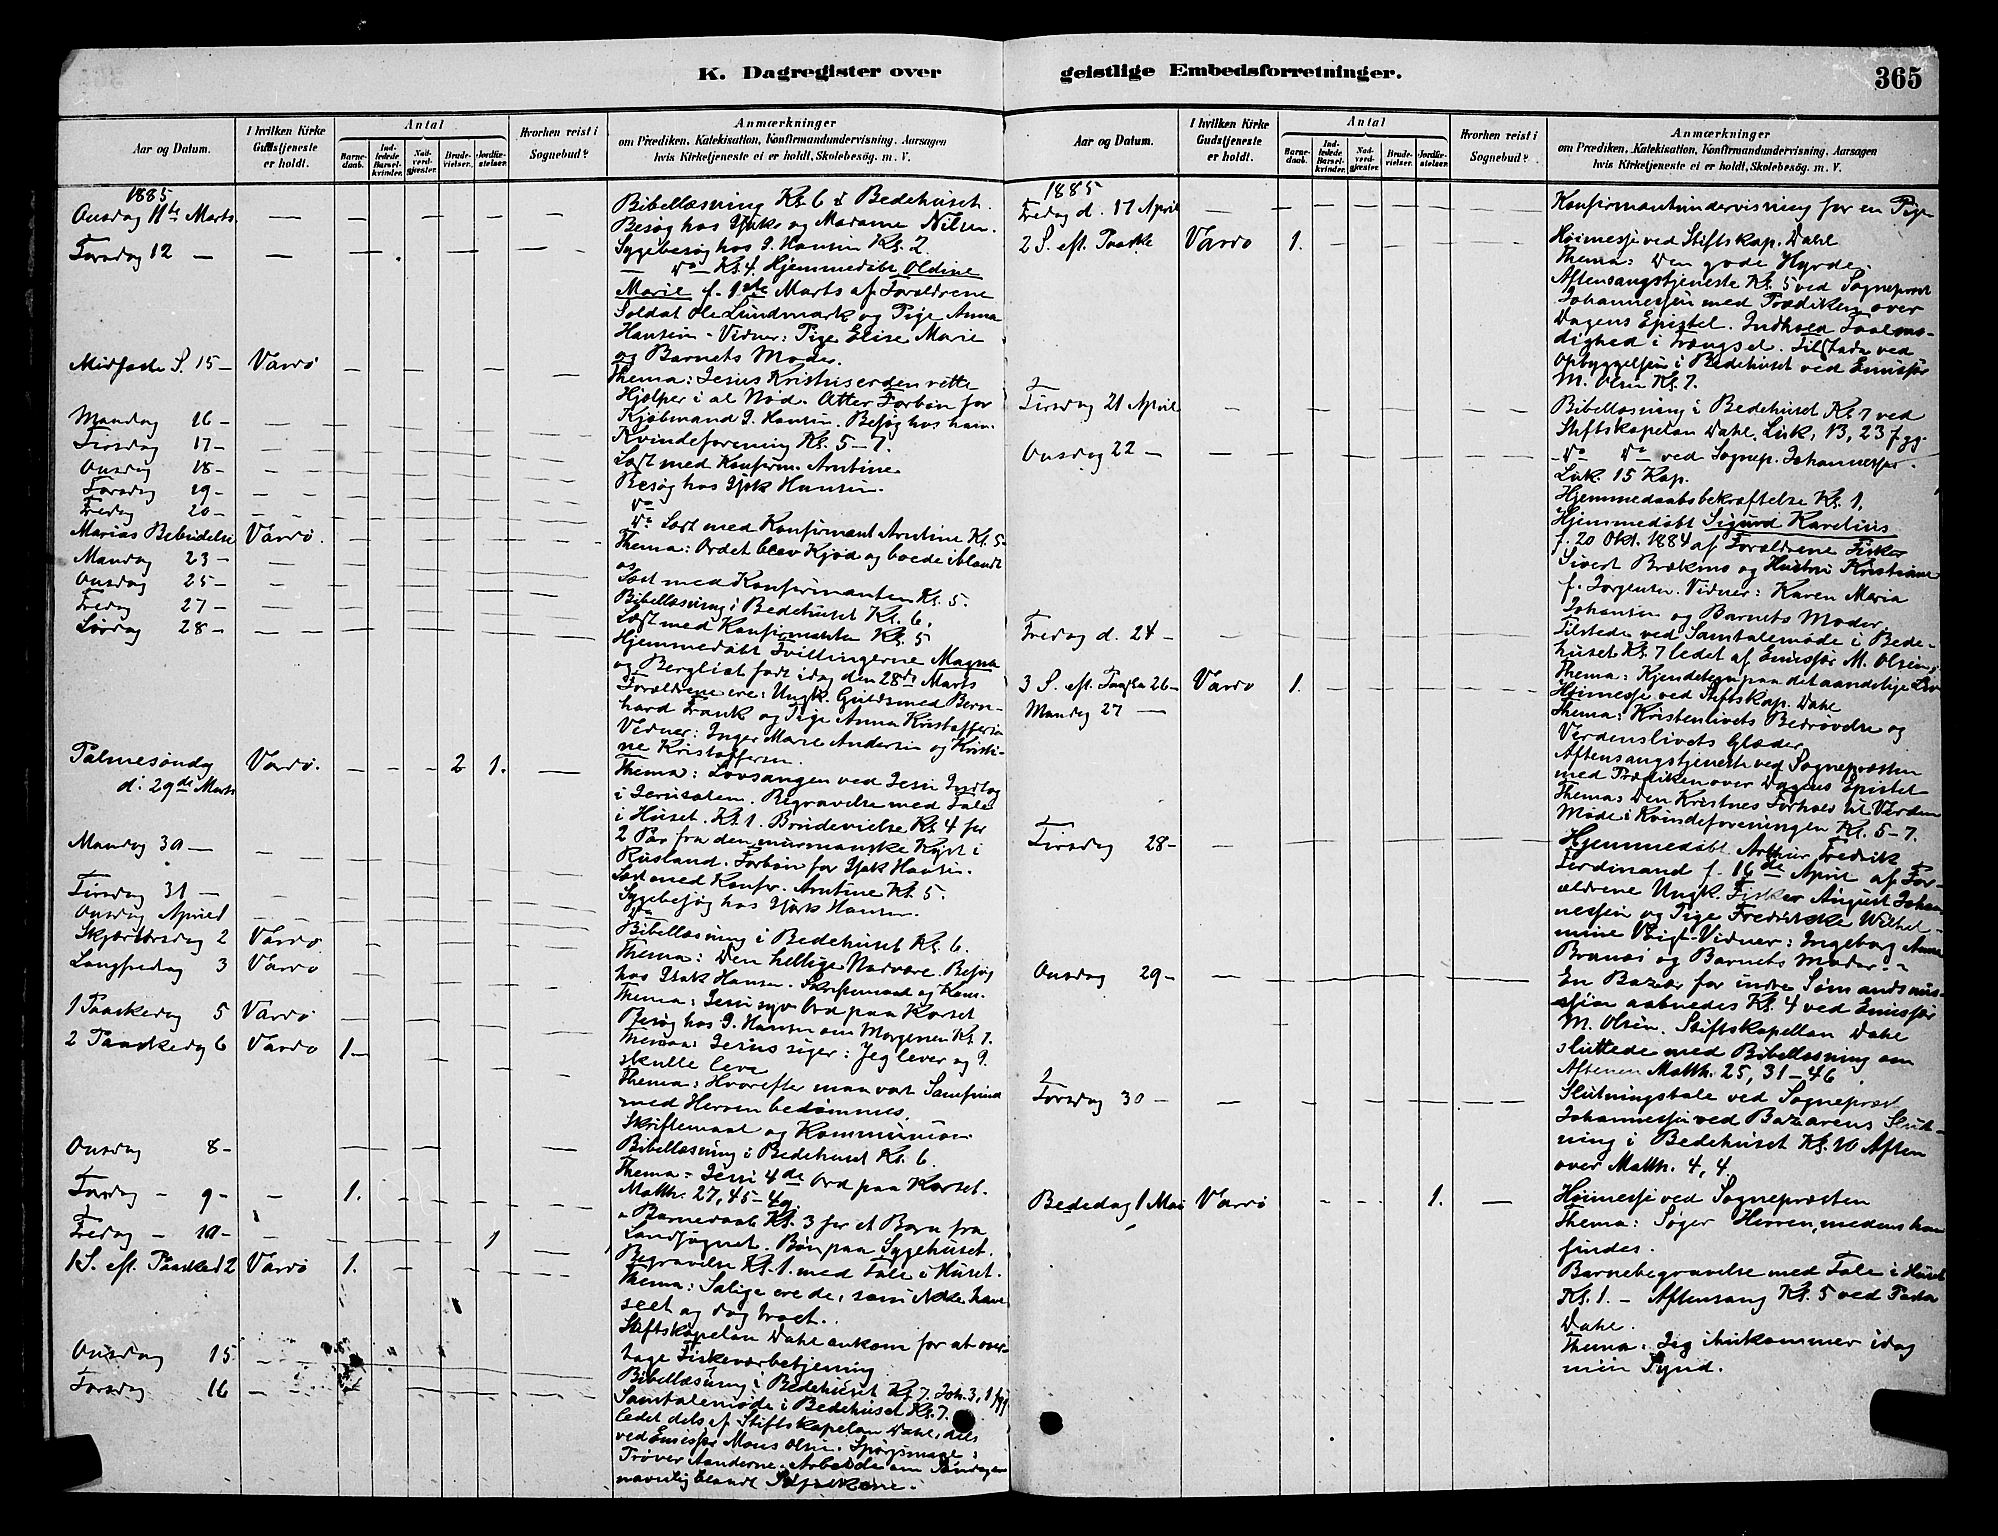 K. Dagregister over
Aar og Datum.
I hvilken Kirke Gudstjeneste er holdt.
Antal
Barne-daab.
Ind-ledede Barsel-kvinder.
Nad-verd-gjæster.
Brude-vielser.
Jordfæ-stelser.
Hvorhen reist i Sognebud?
Anmærkninger
om Prædiken, Katekisation, Konfirmandundervisning, Aarsagen
hvis Kirketjeneste ei er holdt, Skolebesøg. m. V.
1885
Onsdag 11te Marts — Bibellæsning Kl. 6 i Bedehuset.
Besøg hos og Madame Nilsen.
Torsdag 12 — Sygebesøg hos G. Hansen Kl. 2.
— Do Kl. 4. Hjemmedøbt Oldine
Marie f. 1ste Marts af Forældrene
Soldat Ole Lundmark og Pige Anna
Hansen - Vidner: Pige Elise Marie
og Barnets Moder.
Midfaste S. 15 — Vardø Thema: Jesus Kristus er den rette
Hjælper i al Nød. Atter Forbøn for
Mandag 16 — Kjøbmand G. Hansen. Besøg hos ham.
Tirsdag 17 — Kvindeforening Kl. 5 - 7.
Onsdag 18 — Læst med Konfirm. Arntine.
Torsdag 19 — Besøg hos Hansen.
Fredag 20 — Do
Do Læst med Konfirmant Arntine Kl. 5.
Marias Bebudelse Vardø. Thema: Ordet blev Kjød og boede iblandt
os
Mandag 23 — Læst med Konfirmanten Kl. 5.
Onsdag 25 — Bibellæsning i Bedehuset Kl. 6.
Fredag 27 — Læst med Konfirmanten Kl. 5
Lørdag 28 — Hjemmedøbt Tvillingerne Magna
og Bergliot født idag den 28de Marts
Forældrene ere: Ungk. Guldsmed Bern-
hard Frank og Pige Anna Kristoffersen
Vidner: Inger Marie Andersen og Kristi-
ne Kristoffersen.
Palmesøndag Vardø. 2 1. Thema: Lovsangen ved Jesu Indtog
d. 29de Marts i Jerusalem. Begravelse med Tale
i Huset. Kl. 1. Brudevielse Kl. 4 for
2 Par fra den murmanske Kyst i
Rusland. Forbøn for Hansen.
Mandag 30 — Læst med Konfr. Arntine Kl. 5.
Tirsdag 31 — Sygebesøg hos Hansen.
Do
Onsdag April 1 Bibellæsning i Bedehuset Kl. 6.
Skjærtorsdag 2 Vardø Thema: Den hellige Nadvære. Besøg
hos Hansen. Skriftemaal og Kom.
Langfredag 3 Vardø Thema: Jesu syv Ord paa Korset
Besøg hos G. Hansen om Morgenen Kl. 7.
1 Paaskedag 5 Vardø Thema: Jesus siger: Jeg lever og I
skulle leve
2 Paaskedag 6 Vardø 1 Thema: Hvorefter maa vort Samfund
med Herren bedømmes.
Skriftemaal og Kommunion.
Onsdag 8 - Bibellæsning i Bedehuset Kl. 6.
Thema - Jesu 4de Ord paa Korset.
Matth. 27, 45-49
Torsdag - 9 - 1. Barnedaab Kl. 3 for et Barn fra
Landsognet. Bøn paa Sygehuset.
Fredag - 10 - 1 Begravelse Kl. 1. med Tale i Huset.
1 S. eft. Paaske 12 Vardø 1. Thema: Salige ere de, som ikke have
seet og dog troet.
Stiftskapelan Dahl ankom for at over-
tage Fiskeværbetjening
Onsdag 15 Bibellæsning i Bedehuset Kl. 7. Joh. 3, 1 fgg
Torsdag 16 Samtalemøde i Bedehuset Kl. 7.
ledet dels af Stiftskapelan Dahl, dels
ved Emissær Mons Olsen. Spørgsmaal:
Prøver Aanderne. Arbeide om Søndagen
navnlig blandt
geistlige Embedsforretninger.
365
Aar og Datum.
I hvilken Kirke Gudstjeneste er holdt.
Antal
Barne-daab.
Ind-ledede Barsel-kvinder.
Nad-verd-gjæster.
Brude-vielser.
Jordfæ-stelser.
Hvorhen reist i Sognebud?
Anmærkninger
om Prædiken, Katekisation, Konfirmandundervisning, Aarsagen
hvis Kirketjeneste ei er holdt, Skolebesøg. m. V.
1885
Fredag d. 17 April Konfirmantundervisning for en Pige
2 S. eft. Paaske Vardø 1. Høimesse ved Stiftskap. Dahl
Thema: Den gode Hyrde.
Aftensangstjeneste Kl. 5 ved Sognepræst
Johannessen med Prædiken over
Dagens Epistel. Indhold Taalmo-
dighed i Trængsel. Tilstede ved
Opbyggelsen i Bedehuset ved Emissær
M. Olsen Kl. 7.
Tirsdag 21 April Bibellæsning i Bedehuset Kl. 7 ved
Stiftskapelan Dahl. Luk. 13, 23 fgg.
Onsdag 22 — Do Do ved Sognep. Johannessen.
Luk. 15 Kap.
Hjemmedaabsbekræftelse Kl. 1,
Hjemmedøbt Sigurd Karelius
f. 20 Okt. 1884 af Forældrene Fisker
Sivert Brækmo og Hustru Kristiane
f. Jørgensen. Vidner: Karen Maria
Johansen og Barnets Moder.
Fredag d. 24 — Tilstede ved Samtalemøde i Bede-
huset Kl. 7 ledet af Emissær M. Olsen,
Thema: Kjendetegn paa det aandelige Liv
3 S. eft. Paaske 26 — Vardø 1. Høimesse ved Stiftskap. Dahl
Mandag 27 — Thema: Kristenlivets Bedrøvelse og
Verdenslivets Glæder
Aftensangstjeneste ved Sognepræsten
med Prædiken over Dagens Epistel
Thema: Den Kristnes Forhold til Verden
Møde i Kvindeforeningen Kl. 5-7.
Tirsdag 28 — Hjemmedøbt Arthur Fredrik
Ferdinand f. 16de April af For-
ældrene Ungk. Fisker August Johan-
nessen og Pige Fredrikke Wilhel-
mine Voigt. Vidner: Ingeborg Anna
Branæs og Barnets Moder.
Onsdag 29 — En Bazar for indre Sømandsmis-
sion aabnedes Kl. 4 ved Emissær
M. Olsen. Stiftskapellan Dahl
sluttede med Bibellæsning om
Aftenen Matth. 25, 31-46
Torsdag 30 — Slutningstale ved Sognepræst
Johannessen ved Bazarens Slut-
ning i Bedehuset Kl. 10 Aften
over Matth. 4, 4
Bededag 1 Mai Vardø 1. Høimesse ved Sognepræsten
Thema: Søger Herren, medens han
findes.
Barnebegravelse med Tale i Huset
Kl. 1. — Aftensang Kl. 5 ved Pastor
Dahl.
Thema: Jeg ihukommer idag
min Synd.